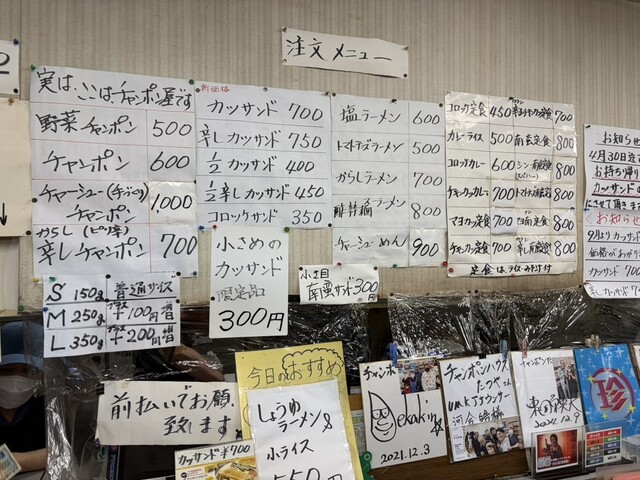 注文メニュー
実は、ここは、チャンポン屋です
野菜チャンポン 500
チャンポン 600
チャーシュー(手づくり)チャンポン 1,000
からし(ピリ辛)
辛しチャンポン 700
S 150g 普通サイズ
M 250g 100円増
L 350g 200円増
新価格
カツサンド 700
辛しカツサンド 750
1/2カツサンド 400
1/2辛しカツサンド 450
コロッケサンド 350
小さめの
カツサンド
限定品
300円
塩ラーメン 600
トマトチーズラーメン 500
からしラーメン 700
ラーメン 800
チャーシューめん 900
小さ目
南蛮サンド 300円
コロッケ定食 450
700
カレーライス 500
南蛮定食 800
コロッケカレー 600
800
チキンカツカレー 700
800
マヨカツ定食 700
800
チキカツ定食 700
800
定食は、ライス・みそ汁付
お知らせ
4月30日迄で
お持ち帰り
カツサンド
にさせて頂きます
お知らせ
9月よりカツサンド
価格があがり
カツサンド 700
前払いでお願い
致します
今日のおすすめ
しょうゆ
ラーメン&
小ライス
550円
カツサンド ¥700
チャンポン
Dekakin
2021.12.3
チャンポンハウス
たつやさん
UMKアナウンサー
チャンポンた
珍